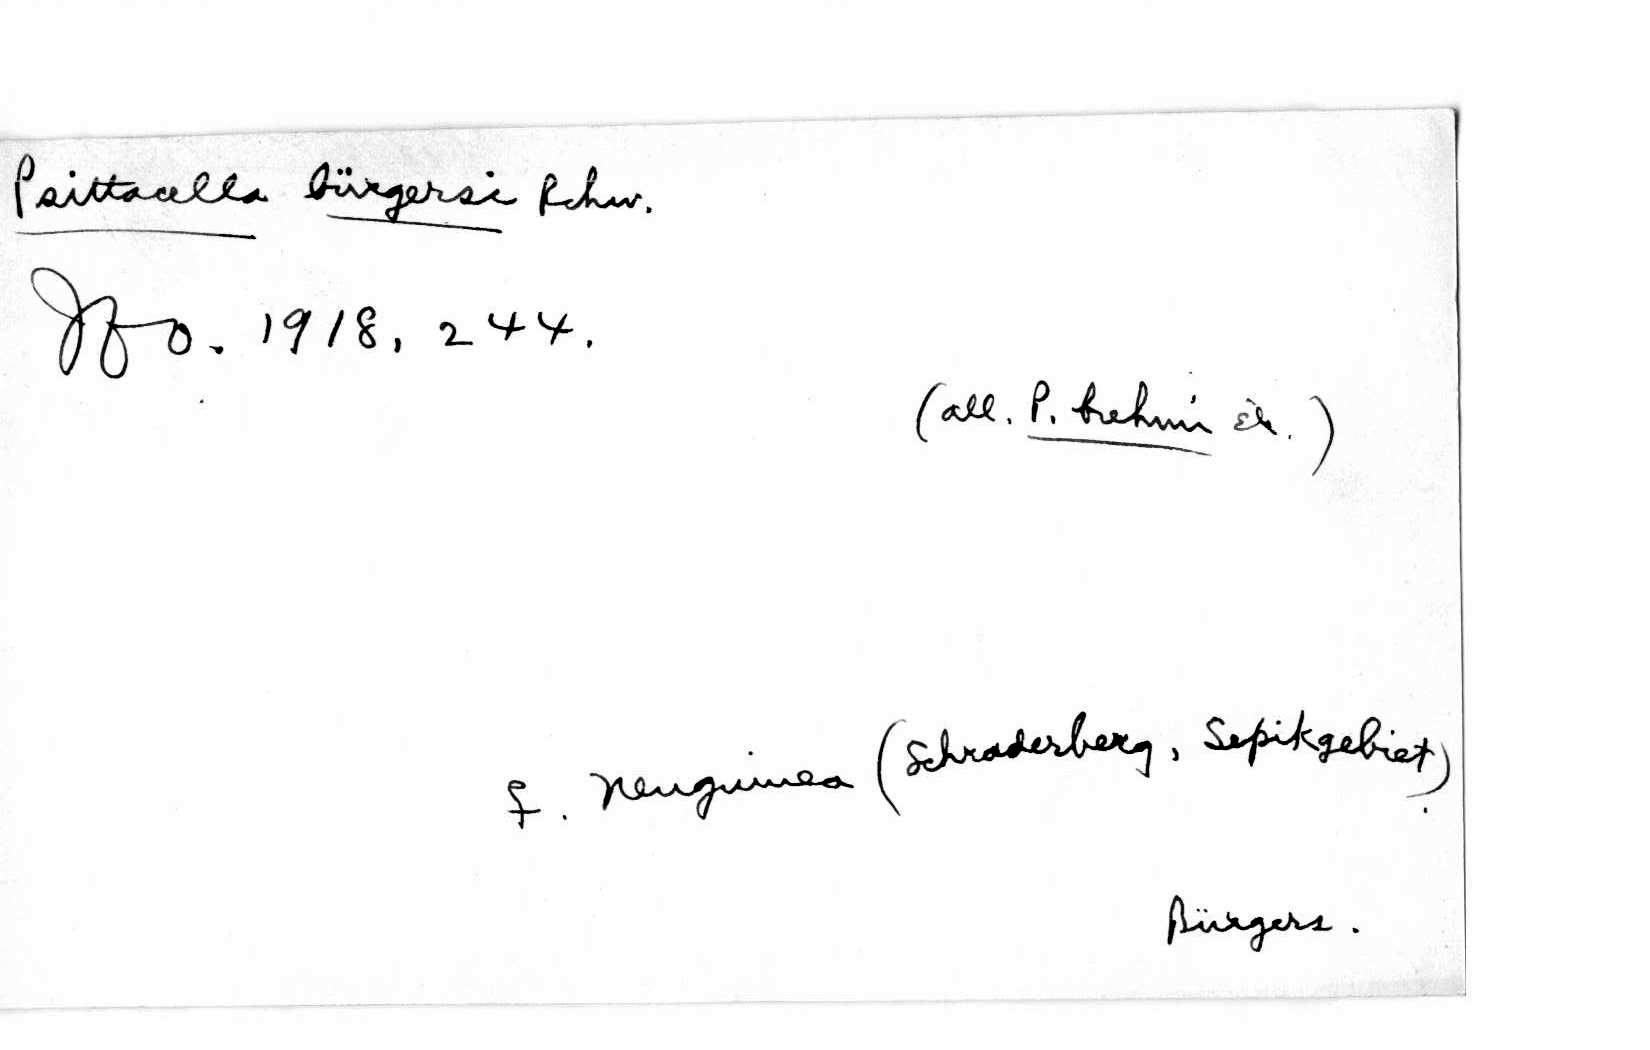 Psittacella bürgersi Rchw.
JfO. 1918, 244.
(all. P. brehmi)
♀. Neuguinea (Schraderberg, Sepikgebiet).
Bürgers.